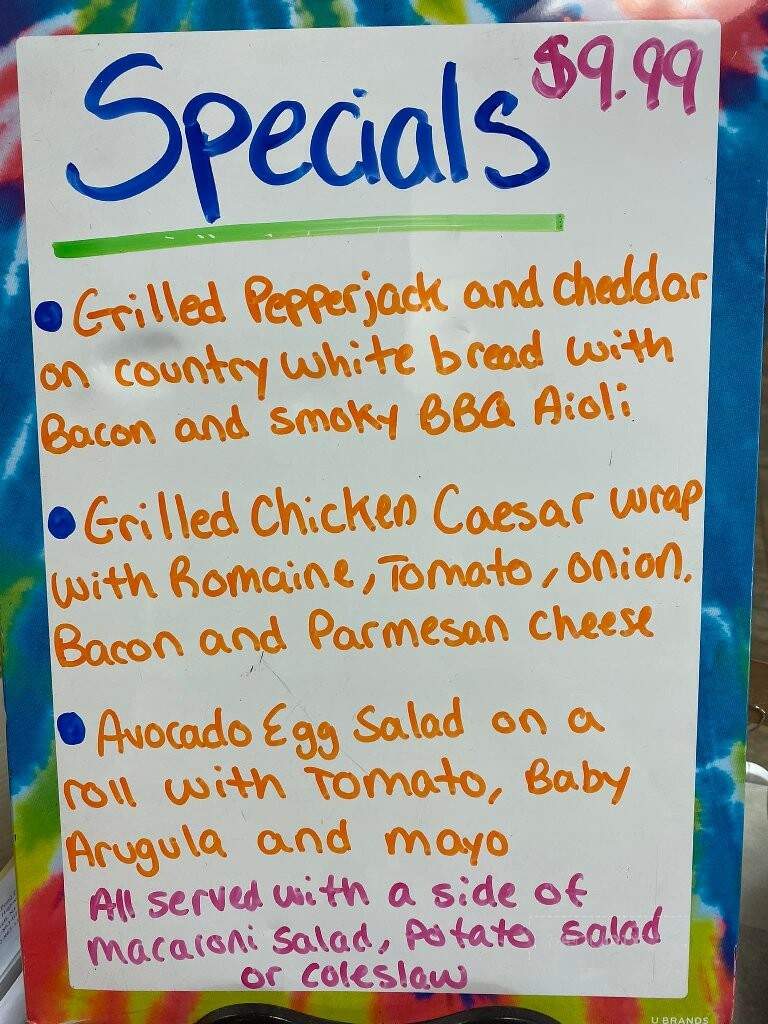 Specials $9.99
• Grilled Pepperjack and cheddar
on country white bread with
Bacon and smoky BBQ Aioli
• Grilled Chicken Caesar wrap
with Romaine, Tomato, onion,
Bacon and Parmesan cheese
• Avocado Egg Salad on a
roll with Tomato, Baby
Arugula and mayo
All served with a side of
macaroni salad, Potato salad
or coleslaw
U BRANDS